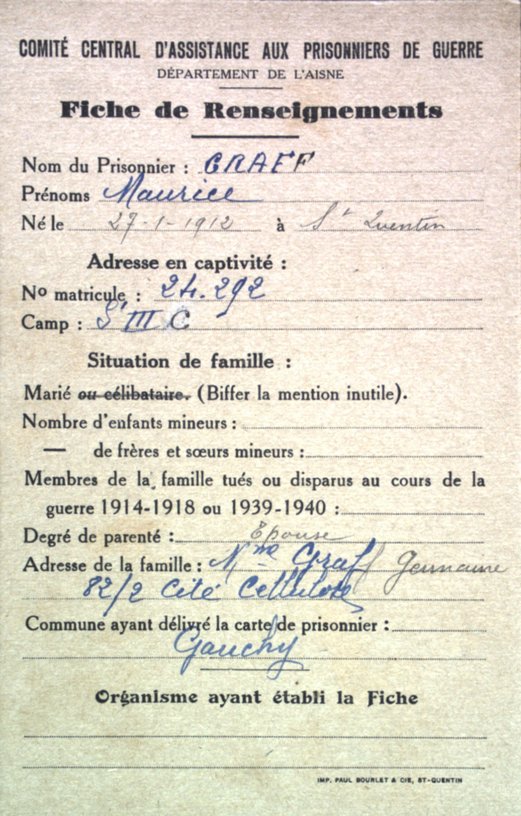 COMITÉ CENTRAL D'ASSISTANCE AUX PRISONNIERS DE GUERRE
DÉPARTEMENT DE L'AISNE
Fiche de Renseignements
Nom du Prisonnier : GRAEFF
Prénoms Maurice
Né le 27-1-1912 à St Quentin
Adresse en captivité :
No matricule : 24.292
Camp : St III C
Situation de famille :
Marié ou célibataire. (Biffer la mention inutile).
Nombre d'enfants mineurs :
— de frères et sœurs mineurs :
Membres de la famille tués ou disparus au cours de la
guerre 1914-1918 ou 1939-1940 :
Degré de parenté : Epouse
Adresse de la famille : Mme Graff Germaine
82/2 Cité Cellulose
Commune ayant délivré la carte de prisonnier :
Gauchy
Organisme ayant établi la Fiche
IMP. PAUL BOURLET & CIE, ST-QUENTIN